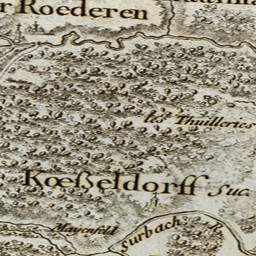 r Roederen
les Thuilleries
Kœßeldorff Suc
Mayenfeld
Surbach R.